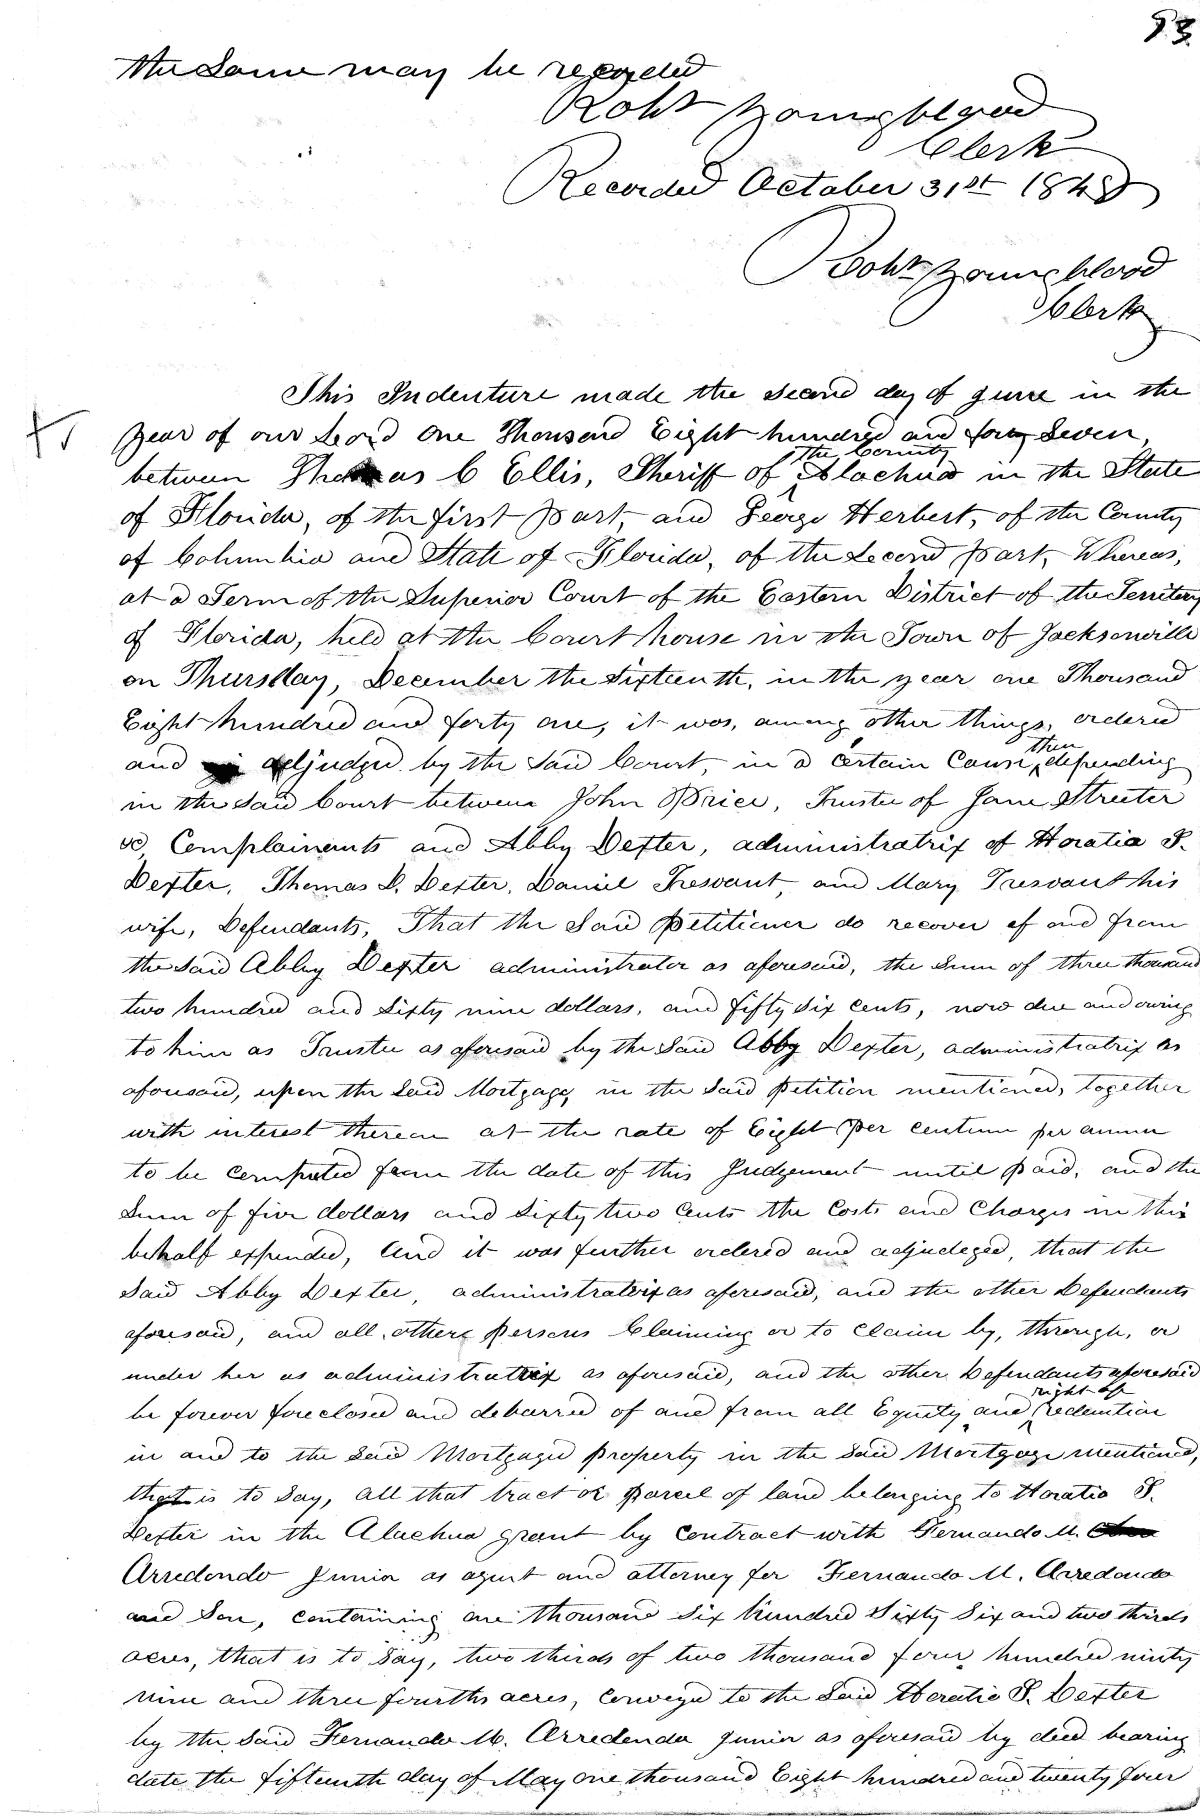 93
the Same may be recorded
Robt Youngblood
Clerk
Recorded October 31st 1848
Robt Youngblood
Clerk
This Indenture made the second day of June in the
year of our Lord One Thousand Eight hundred and forty Seven,
between Thomas C Ellis, Sheriff of the County Alachua in the State
of Florida, of the first part, and George Herbert, of the County
of Columbia and State of Florida, of the Second part, Whereas,
at a Term of the Superior Court of the Eastern District of the Territory
of Florida, held at the Court house in the Town of Jacksonville
on Thursday, December the Sixteenth, in the year one Thousand
Eight hundred and forty one, it was, among other things, ordered
and adjudged by the said Court, in a certain Cause then depending
in the said Court between John Price, Trustee of Jane Streeter
&c, Complainants and Abby Dexter, administratrix of Horatio S.
Dexter, Thomas S. Dexter, Daniel Tresvant, and Mary Tresvant his
wife, Defendants, That the Said Petitioner do recover of and from
the Said Abby Dexter administrator as aforesaid, the Sum of three thousand
two hundred and Sixty nine dollars, and fifty Six Cents, now due and owing
to him as Trustee as aforesaid by the Said Abby Dexter, administratrix as
aforesaid, upon the Said Mortgage, in the Said petition mentioned, together
with interest thereon at the rate of Eight per centum per annum
to be computed from the date of this Judgement until paid, and the
Sum of five dollars and Sixty two Cents the Costs and Charges in this
behalf expended, And it was further ordered and adjudeged, that the
Said Abby Dexter, administratrix as aforesaid, and the other Defendants
aforesaid, and all others persons Claiming or to Claim by, through, or
under her as administratrix as aforesaid, and the other Defendants aforesaid
be forever foreclosed and debarred of and from all Equity and right of redemtion
in and to the Said Mortgaged property in the Said Mortgage mentioned,
that is to Say, all that tract or parcel of land belonging to Horatio S.
Dexter in the Alachua grant by Contract with Fernando M.
Arredondo Junior as agent and attorney for Fernando M. Arredondo
and Son, containing one thousand Six hundred Sixty Six and two thirds
acres, that is to Say, two thirds of two thousand four hundred ninty
nine and three fourths acres, conveyed to the Said Horatio S. Dexter
by the Said Fernando M. Arredondo Junior as aforesaid by deed bearing
date the fifteenth day of May one thousand Eight hundred and twenty four